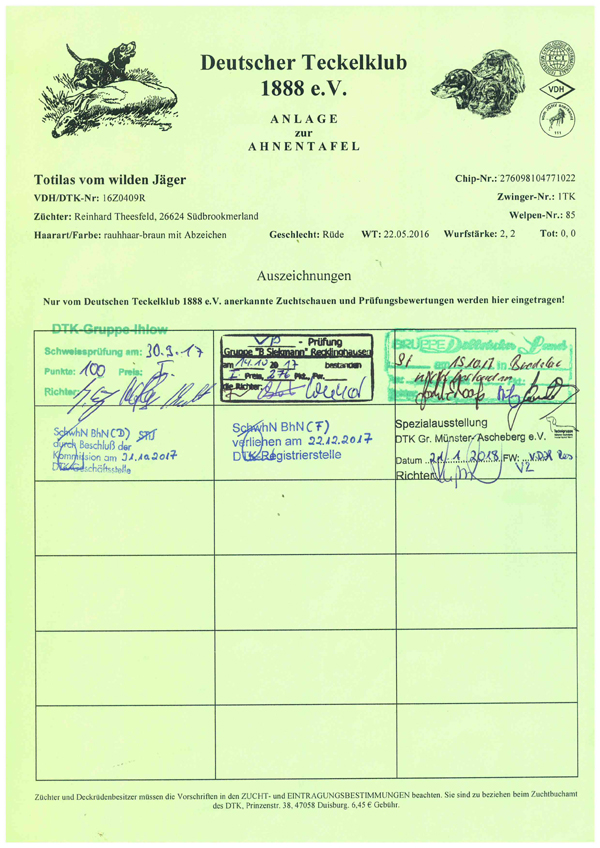 Deutscher Teckelklub
1888 e.V.
ANLAGE
zur
AHNENTAFEL
FCI
VDH
Totilas vom wilden Jäger
Chip-Nr.: 276098104771022
VDH/DTK-Nr: 16Z0409R
Zwinger-Nr.: 1TK
Züchter: Reinhard Theesfeld, 26624 Südbrookmerland
Welpen-Nr.: 85
Haarart/Farbe: rauhhaar-braun mit Abzeichen Geschlecht: Rüde WT: 22.05.2016 Wurfstärke: 2, 2 Tot: 0, 0
Auszeichnungen
Nur vom Deutschen Teckelklub 1888 e.V. anerkannte Zuchtschauen und Prüfungsbewertungen werden hier eingetragen!
DTK-Gruppe-Ihlow
Schweissprüfung am: 30.9.17
Punkte: 100 Preis: I.
Richter:
VP - Prüfung
Gruppe "B Siekmann" Recklinghausen
am 14.10 2017 bestanden
I. Preis, 276 Pkt.
die Richter:
GRUPPE
am 15.10.17 in
SchwhN BhN (D)
durch Beschluß der
Kommission am 31.10.2017
DTK-Geschäftsstelle
SchwhN BhN (F)
verliehen am 22.12.2017
DTK-Registrierstelle
Spezialausstellung
DTK Gr. Münster/Ascheberg e.V.
Datum 21.1.2018 FW:
V2
Richter
Züchter und Deckrüdenbesitzer müssen die Vorschriften in den ZUCHT- und EINTRAGUNGSBESTIMMUNGEN beachten. Sie sind zu beziehen beim Zuchtbuchamt
des DTK, Prinzenstr. 38, 47058 Duisburg. 6,45 € Gebühr.